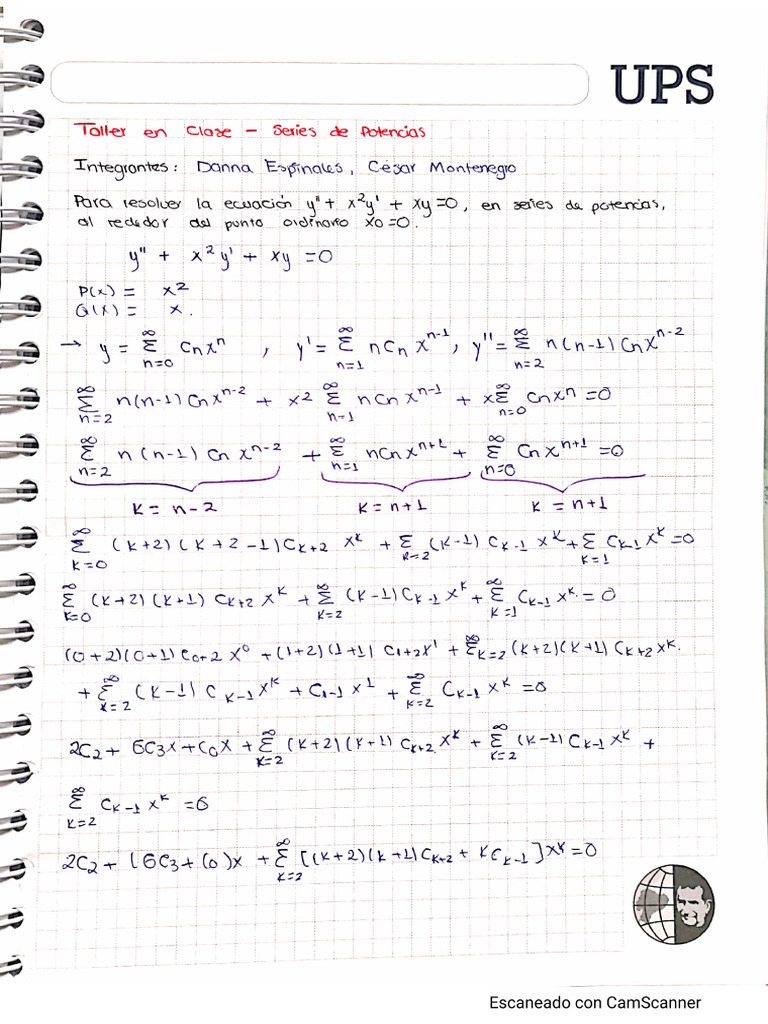 UPS
Taller en Clase – Series de Potencias
Integrantes: Danna Espinales, César Montenegro
Para resolver la ecuación y'' + x²y' + xy = 0, en series de potencias,
al rededor del punto ordinario x0 = 0.
y'' + x²y' + xy = 0
P(x) = x²
Q(x) = x.
→ y = ∑_{n=0}^{∞} Cnxⁿ , y' = ∑_{n=1}^{∞} nCn x^{n-1}, y'' = ∑_{n=2}^{∞} n(n-1)Cnx^{n-2}
∑_{n=2}^{∞} n(n-1)Cnx^{n-2} + x² ∑_{n=1}^{∞} nCnx^{n-1} + x∑_{n=0}^{∞} Cnxⁿ = 0
∑_{n=2}^{∞} n(n-1)Cn x^{n-2} + ∑_{n=1}^{∞} nCnx^{n+1} + ∑_{n=0}^{∞} Cnx^{n+1} = 0
K = n-2 K = n+1 K = n+1
∑_{K=0}^{∞} (K+2)(K+2-1)C_{K+2} x^K + ∑_{K=2} (K-1)C_{K-1}x^K + ∑_{K=1} C_{K-1}x^K = 0
∑_{K=0}^{∞} (K+2)(K+1)C_{K+2}x^K + ∑_{K=2}^{∞} (K-1)C_{K-1}x^K + ∑_{K=1}^{∞} C_{K-1}x^K = 0
(0+2)(0+1)C_{0+2}x⁰ + (1+2)(1+1)C_{1+2}x¹ + ∑_{K=2}^{∞} (K+2)(K+1)C_{K+2}x^K.
+ ∑_{K=2}^{∞} (K-1)C_{K-1}x^K + C_{1-1}x¹ + ∑_{K=2}^{∞} C_{K-1}x^K = 0
2C₂ + 6C₃x + C₀x + ∑_{K=2}^{∞} (K+2)(K+1)C_{K+2}x^K + ∑_{K=2}^{∞} (K-1)C_{K-1}x^K +
∑_{K=2}^{∞} C_{K-1}x^K = 0
2C₂ + (6C₃ + C₀)x + ∑_{K=2}^{∞} [(K+2)(K+1)C_{K+2} + KC_{K-1}]x^K = 0
Escaneado con CamScanner